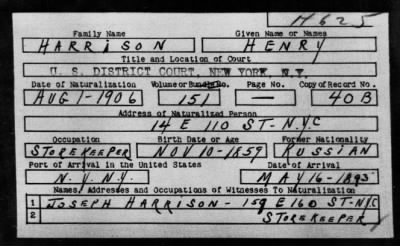 H625
Family Name Given Name or Names
HARRISON HENRY
Title and Location of Court
U. S. DISTRICT COURT, NEW YORK, N.Y.
Date of Naturalization Volume or Bundle No. Page No. Copy of Record No.
AUG 1-1906 151 — 40B
Address of Naturalized Person
14 E 110 ST-NYC
Occupation Birth Date or Age Former Nationality
STOREKEEPER NOV 10-1859 RUSSIAN
Port of Arrival in the United States Date of Arrival
N.Y. N.Y. MAY 16-1893
Names, Addresses and Occupations of Witnesses To Naturalization
1 JOSEPH HARRISON-159 E 160 ST-NYC
2 STOREKEEPER